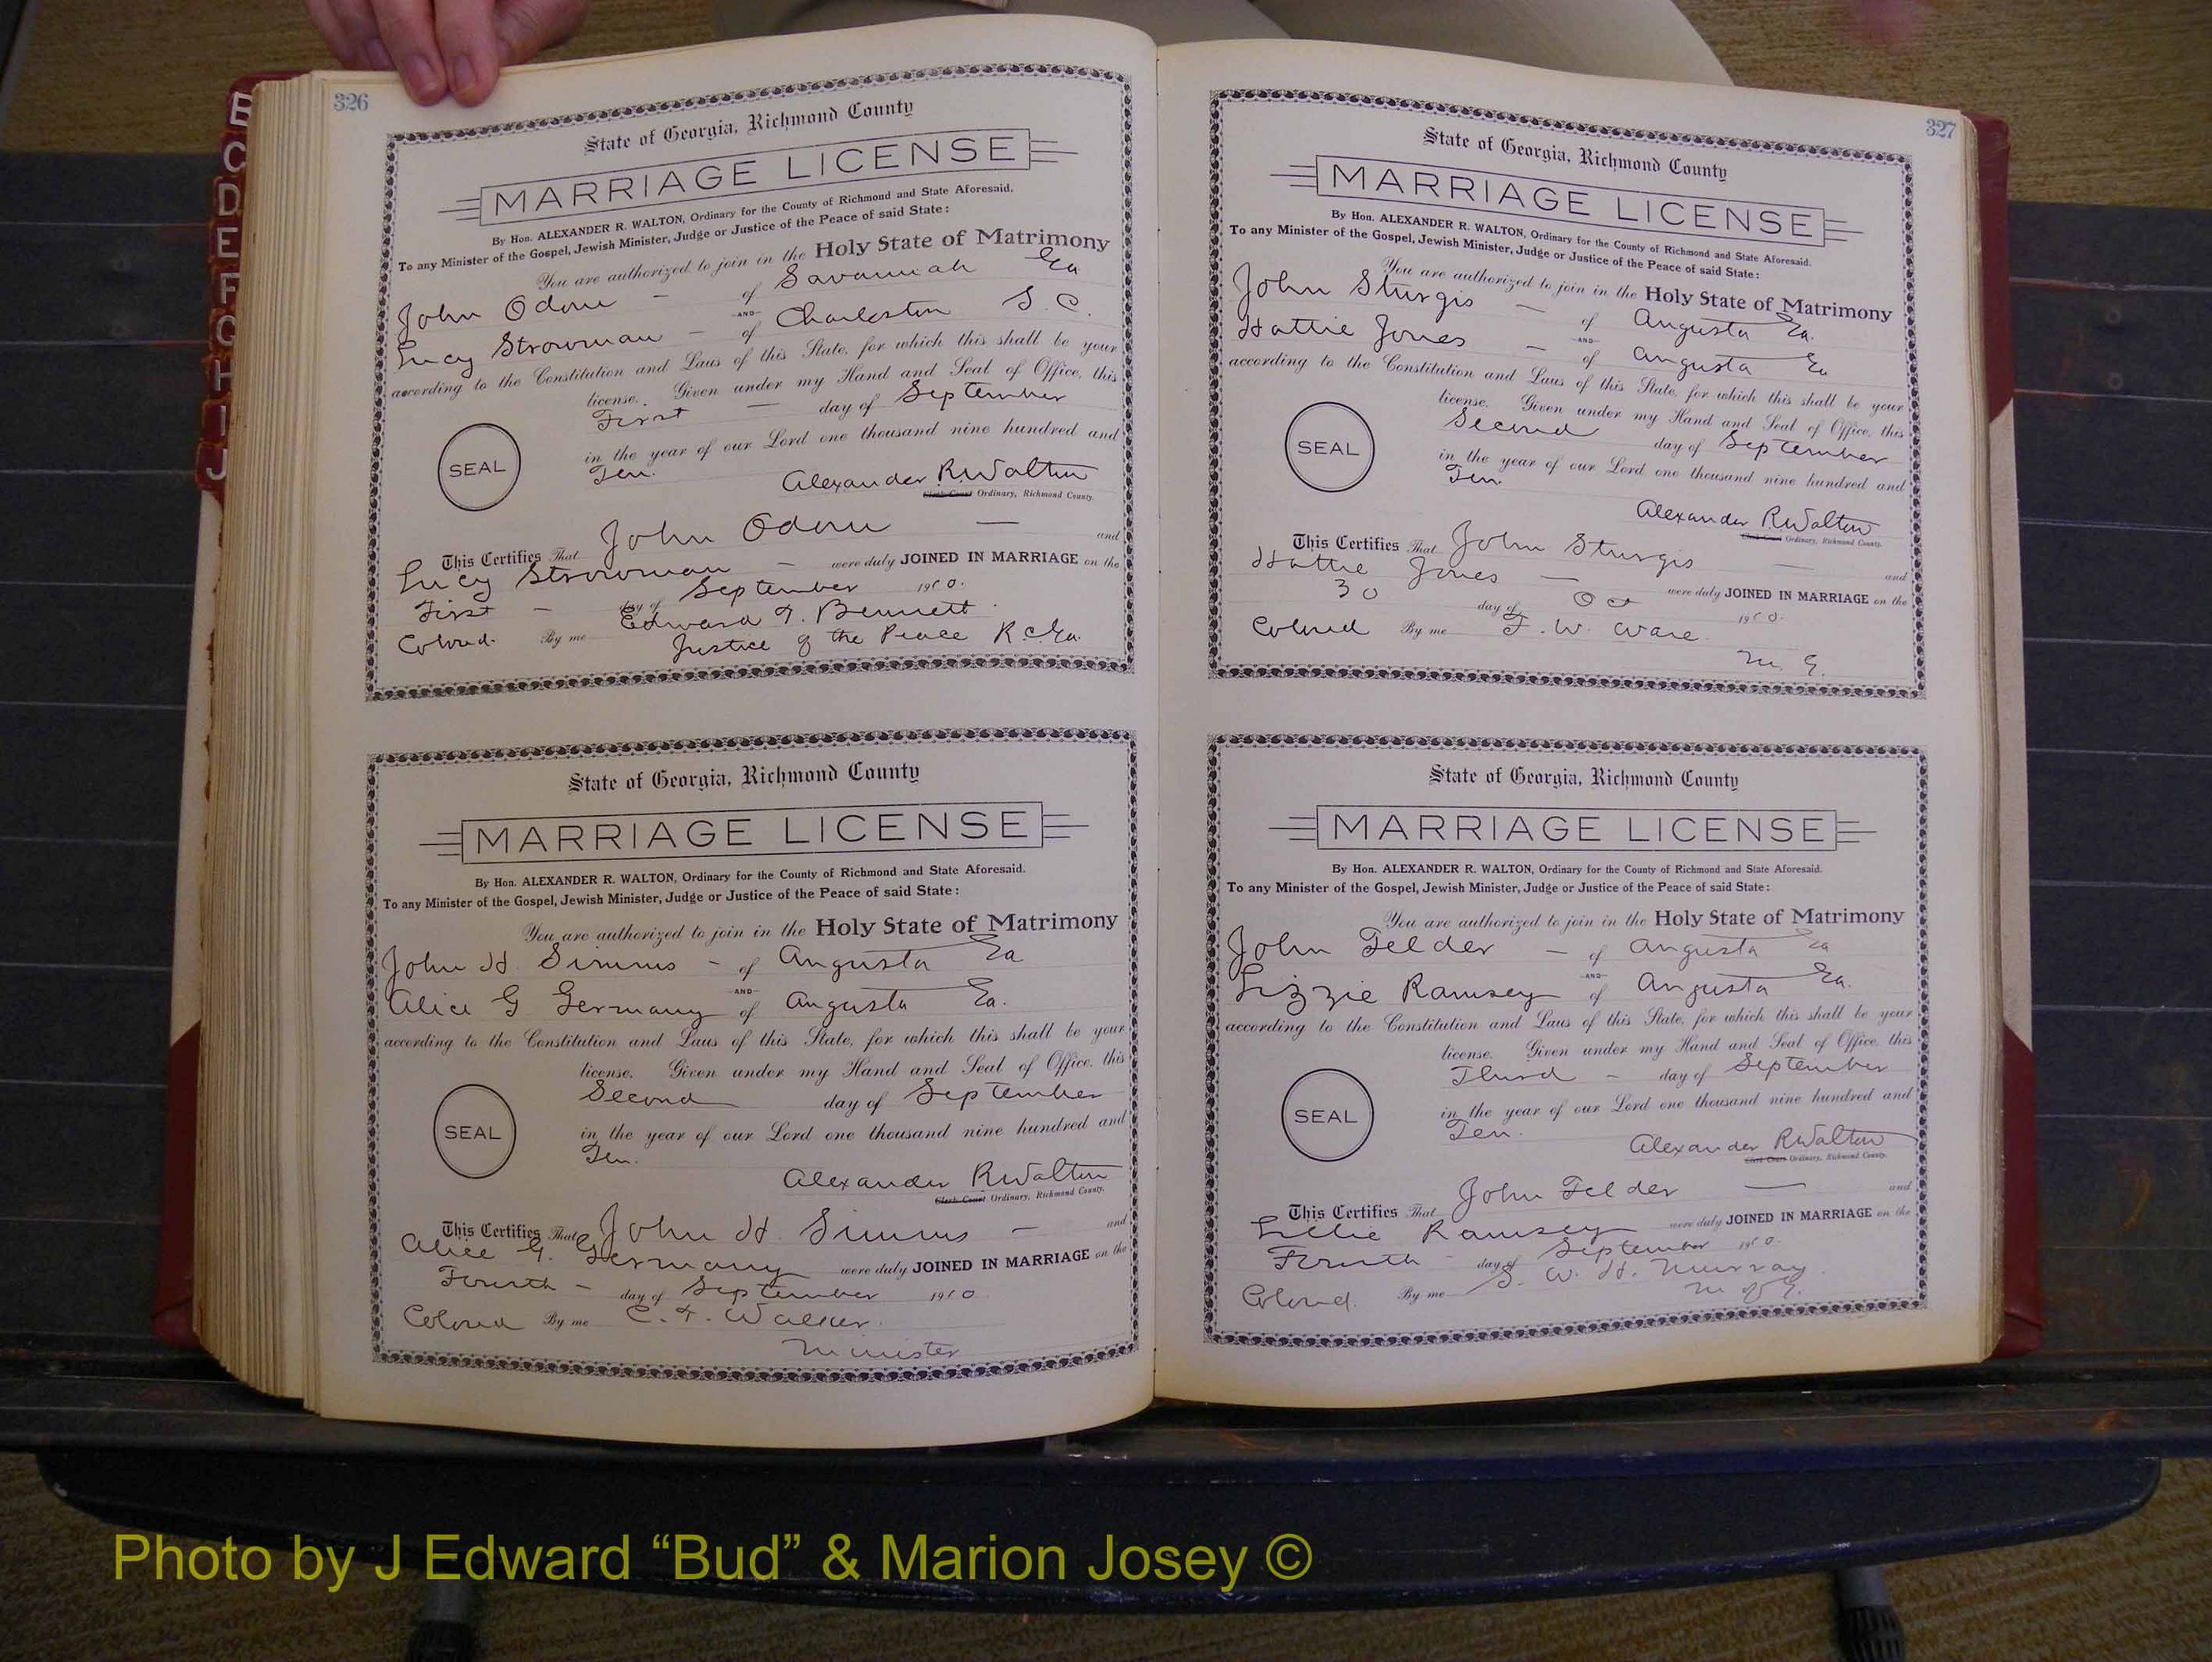 B
C
D
E
F
G
H
I
J
326
State of Georgia, Richmond County
MARRIAGE LICENSE
By Hon. ALEXANDER R. WALTON, Ordinary for the County of Richmond and State Aforesaid.
To any Minister of the Gospel, Jewish Minister, Judge or Justice of the Peace of said State:
You are authorized to join in the Holy State of Matrimony
John Odom - of Savannah Ga
-AND-
Lucy Strowman - of Charleston S. C.
according to the Constitution and Laws of this State, for which this shall be your
license. Given under my Hand and Seal of Office, this
First - day of September
SEAL
in the year of our Lord one thousand nine hundred and
Ten.
Alexander R. Walton
Clerk Court Ordinary, Richmond County.
This Certifies That John Odom - and
Lucy Strowman - were duly JOINED IN MARRIAGE on the
First - day of September 1910.
Colored. By me Edward T. Bennett.
Justice of the Peace R.C. Ga.
State of Georgia, Richmond County
MARRIAGE LICENSE
By Hon. ALEXANDER R. WALTON, Ordinary for the County of Richmond and State Aforesaid.
To any Minister of the Gospel, Jewish Minister, Judge or Justice of the Peace of said State:
You are authorized to join in the Holy State of Matrimony
John H. Simms - of Augusta Ga
-AND-
Alice G Germany of Augusta Ga.
according to the Constitution and Laws of this State, for which this shall be your
license. Given under my Hand and Seal of Office, this
Second day of September
SEAL
in the year of our Lord one thousand nine hundred and
Ten.
Alexander R Walton
Clerk Court Ordinary, Richmond County.
This Certifies That John H. Simms - and
Alice G. Germany were duly JOINED IN MARRIAGE on the
Fourth - day of September 1910
Colored By me C. T. Walker.
Minister
327
State of Georgia, Richmond County
MARRIAGE LICENSE
By Hon. ALEXANDER R. WALTON, Ordinary for the County of Richmond and State Aforesaid.
To any Minister of the Gospel, Jewish Minister, Judge or Justice of the Peace of said State:
You are authorized to join in the Holy State of Matrimony
John Sturgis - of Augusta Ga.
-AND-
Hattie Jones - of Augusta Ga
according to the Constitution and Laws of this State, for which this shall be your
license. Given under my Hand and Seal of Office, this
Second day of September
SEAL
in the year of our Lord one thousand nine hundred and
Ten
Alexander R Walton
Clerk Court Ordinary, Richmond County.
This Certifies That John Sturgis - and
Hattie Jones - were duly JOINED IN MARRIAGE on the
30 day of Oct 1910.
Colored By me F. W. Ware.
M. G.
State of Georgia, Richmond County
MARRIAGE LICENSE
By Hon. ALEXANDER R. WALTON, Ordinary for the County of Richmond and State Aforesaid.
To any Minister of the Gospel, Jewish Minister, Judge or Justice of the Peace of said State:
You are authorized to join in the Holy State of Matrimony
John Felder - of Augusta Ga
-AND-
Lizzie Ramsey of Augusta Ga.
according to the Constitution and Laws of this State, for which this shall be your
license. Given under my Hand and Seal of Office, this
Third - day of September
SEAL
in the year of our Lord one thousand nine hundred and
Ten.
Alexander R Walton
Clerk Court Ordinary, Richmond County.
This Certifies That John Felder - and
Lillie Ramsey were duly JOINED IN MARRIAGE on the
Fourth - day of September 1910.
Colored. By me S. W. H. Murray.
M of G.
Photo by J Edward “Bud” & Marion Josey ©